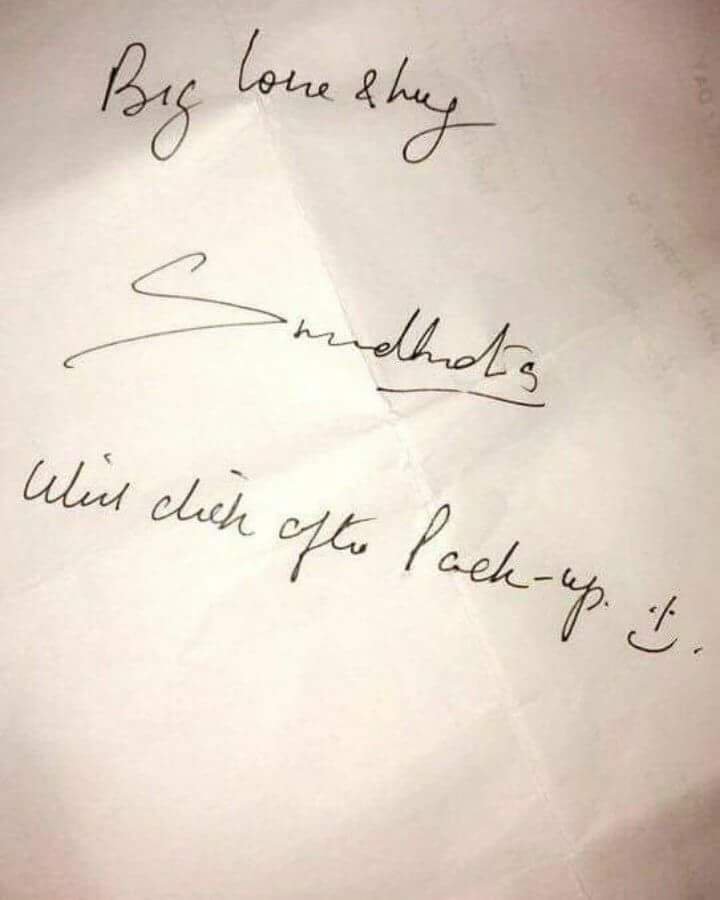 Big love & hug
Will click after Pack-up. :)